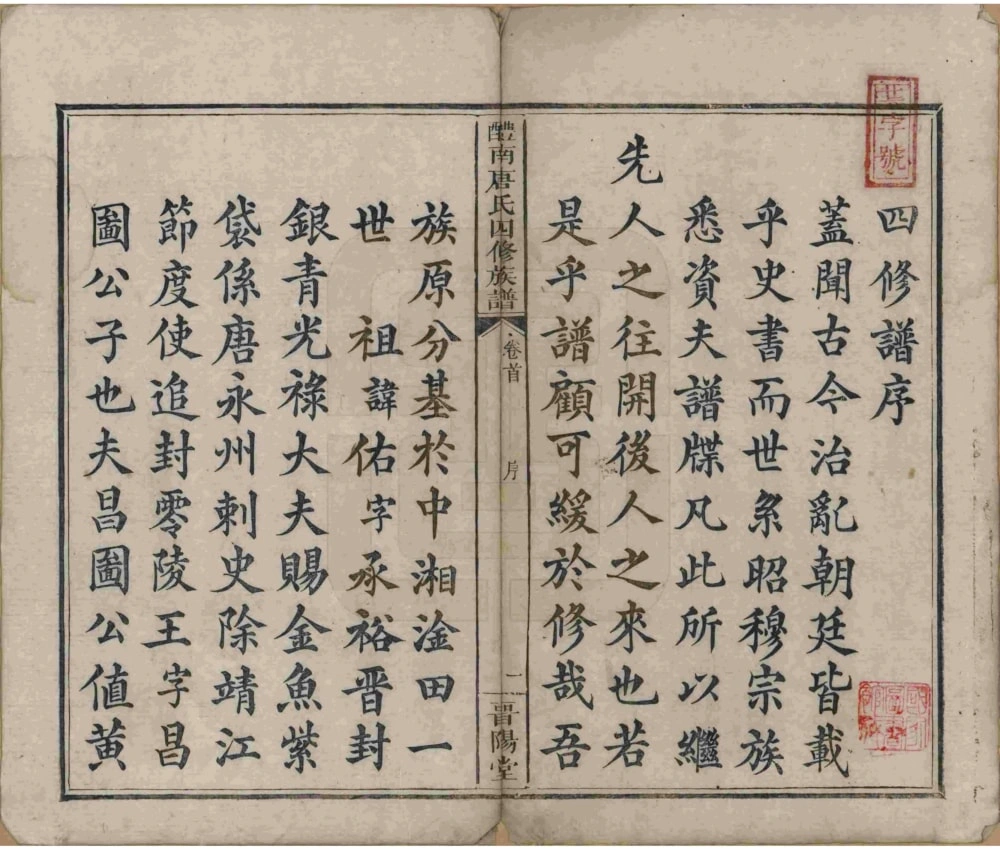 四修譜序
蓋聞古今治亂朝廷皆載
乎史書而世系昭穆宗族
悉資夫譜牒凡此所以繼
先人之往開後人之來也若
是乎譜顧可緩於修哉吾
醴南唐氏四修族譜
卷首
序
一
晋陽堂
族原分基於中湘淦田一
世祖諱佑字承裕晋封
銀青光祿大夫賜金魚紫
袋係唐永州刺史除靖江
節度使追封零陵王字昌
圖公子也夫昌圖公值黃
字號